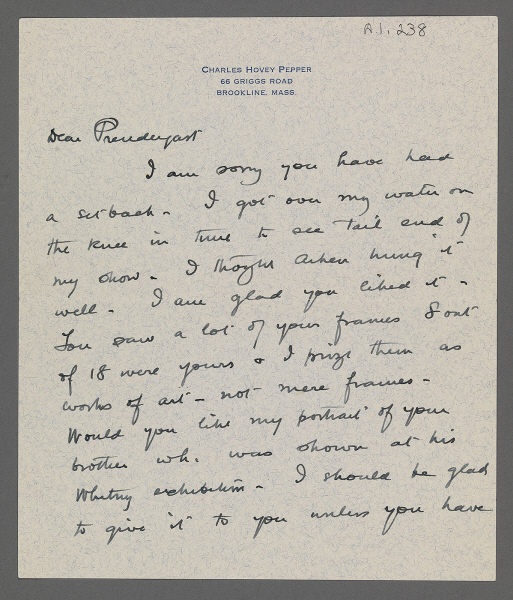 A.1.238
CHARLES HOVEY PEPPER
66 GRIGGS ROAD
BROOKLINE, MASS.
Dear Prendergast
I am sorry you have had
a setback - I got over my water on
the knee in time to see tail end of
my show - I thought Acken hung it
well - I am glad you liked it -
You saw a lot of your frames 8 out
of 18 were yours & I prize them as
works of art - not mere frames -
Would you like my portrait of your
brother wh. was shown at his
Whitney exhibition - I should be glad
to give it to you unless you have